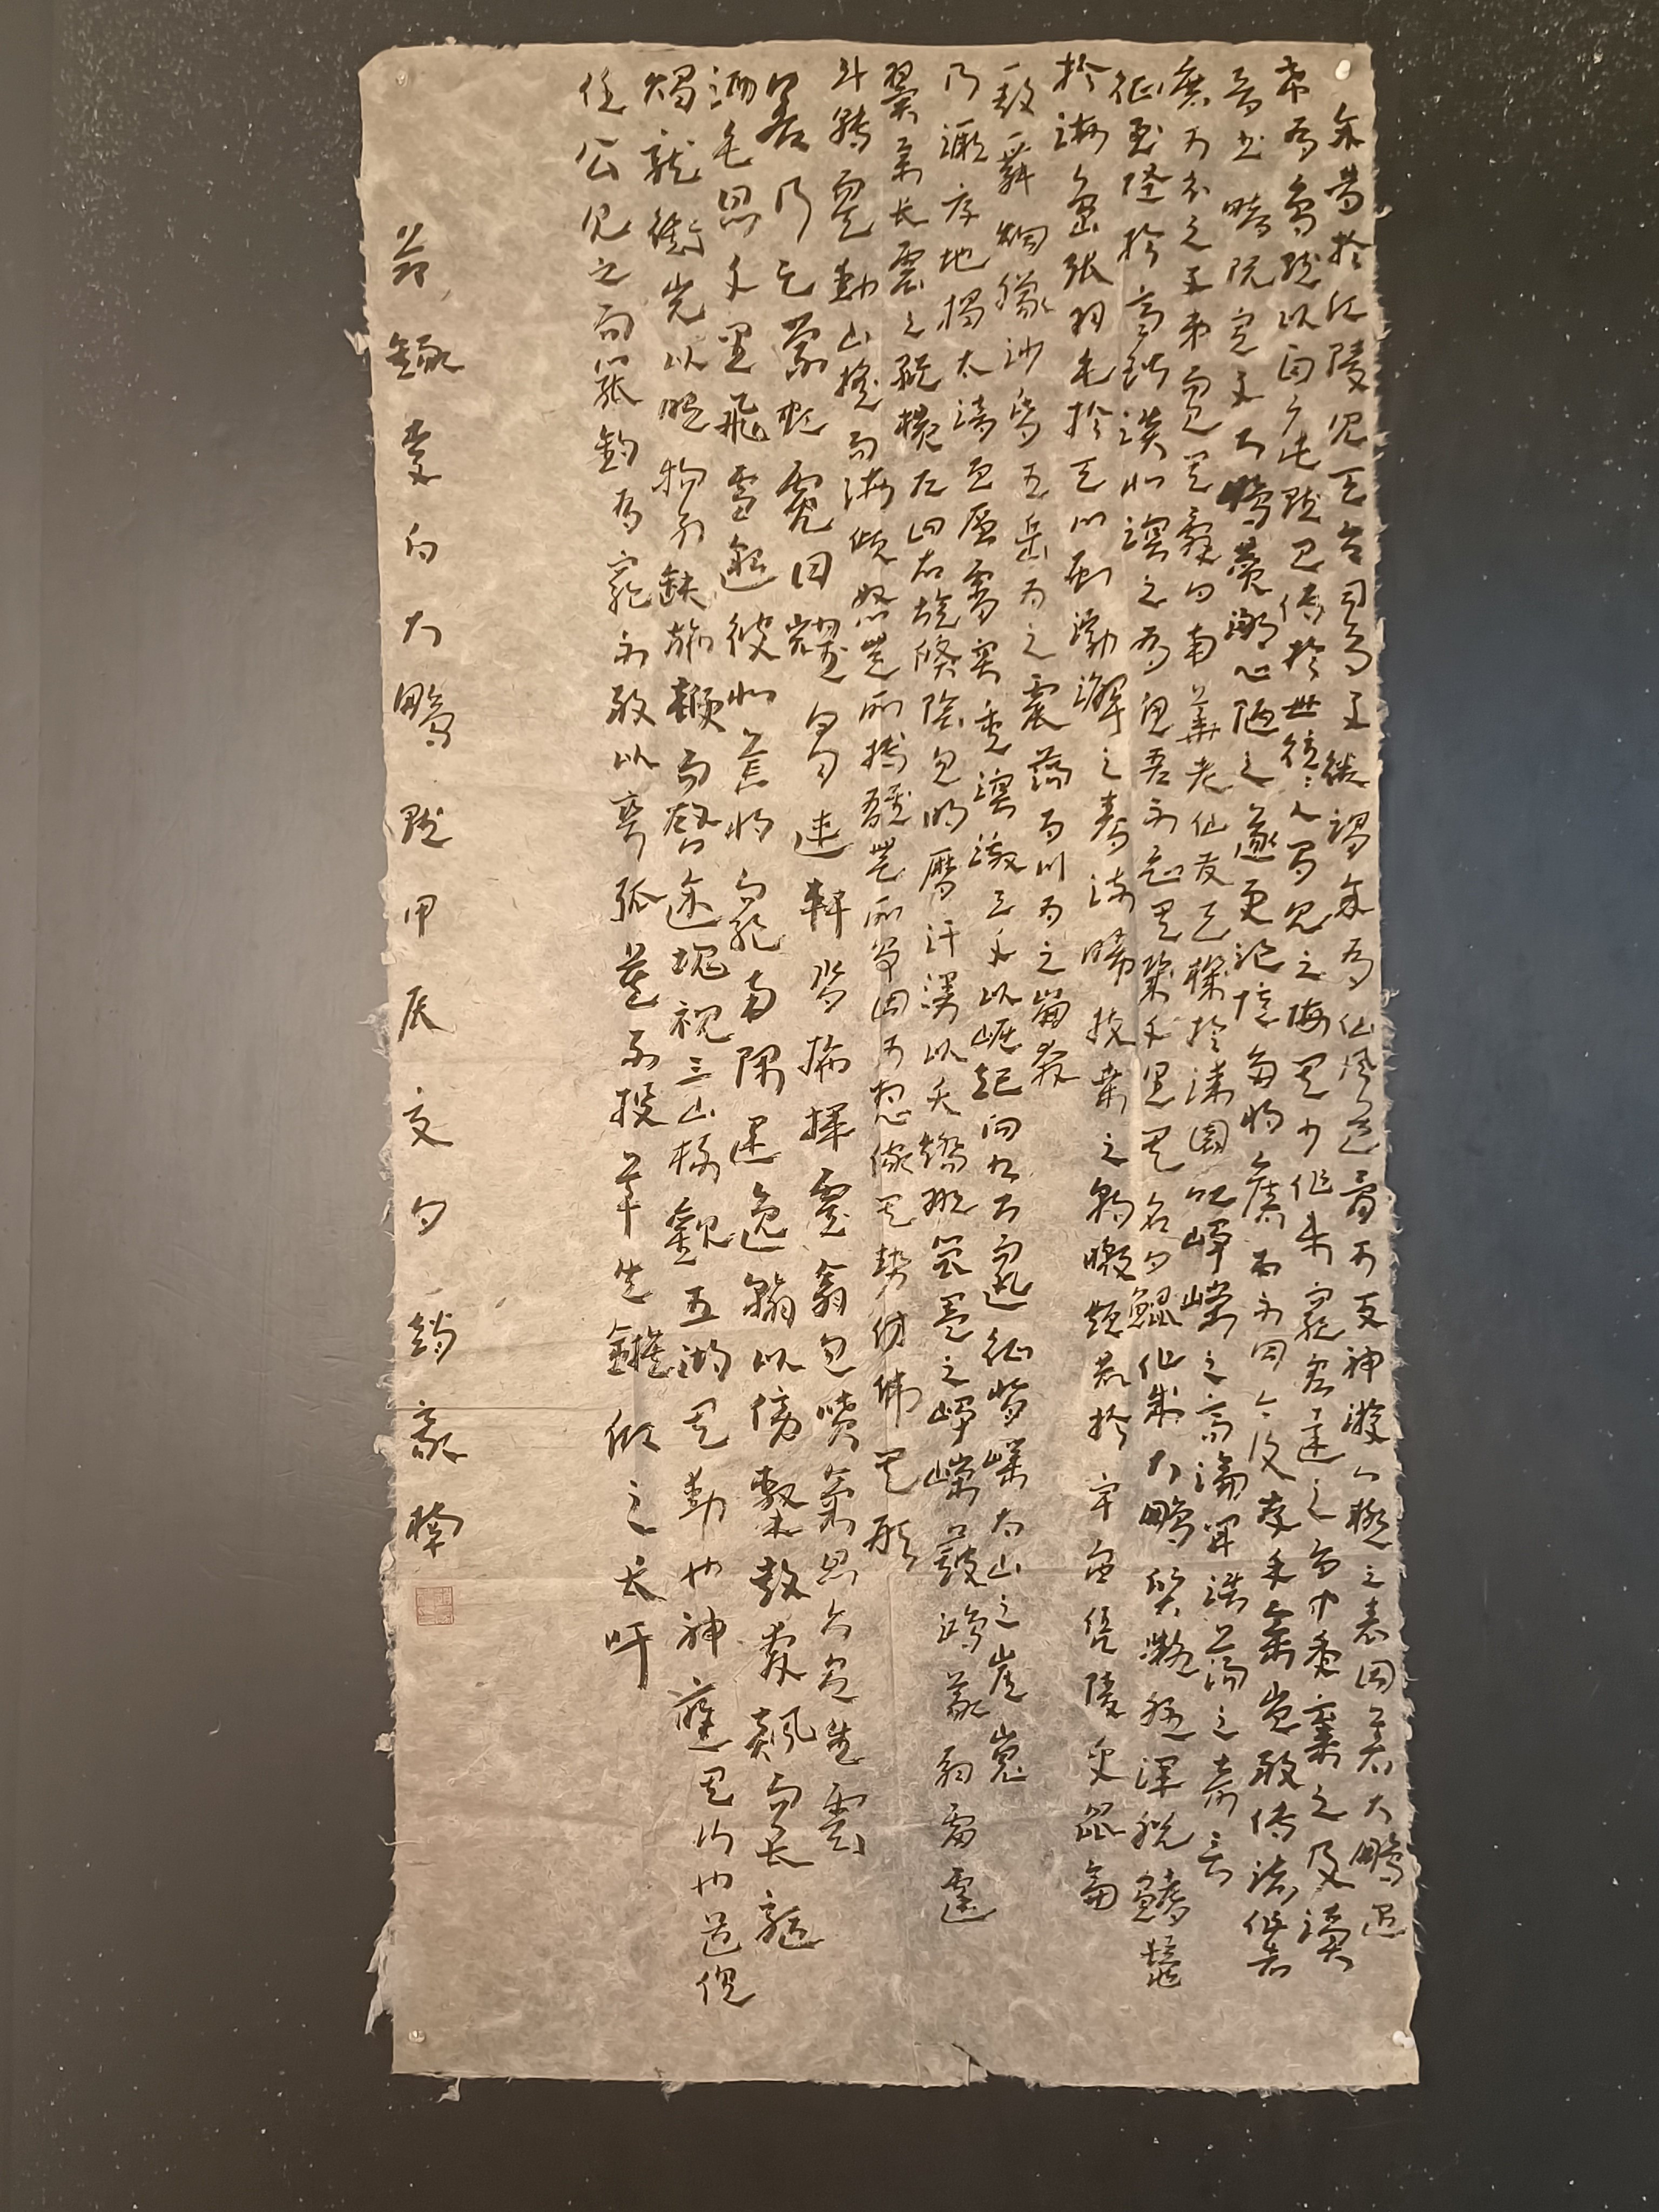 余昔於江陵見天台司馬子微謂余有仙風道骨可與神遊八極之表因著大鵬遇
希有鳥賦以自廣此賦已傳於世往往人間見之悔其少作未窮宏達之旨中年棄之及讀
晉書睹阮宣子大鵬贊鄙心陋之遂更記憶多將舊本不同今復存手集豈敢傳諸作者
庶可示之子弟而已其辭曰南華老仙發天機於漆園吐崢嶸之高論開浩蕩之奇言
征至怪於齊諧談北溟之有魚吾不知其幾千里其名曰鯤化成大鵬質凝胚渾脫鬐鬣
於海島張羽毛於天門刷渤澥之春流晞扶桑之朝暾燀赫於宇宙憑陵乎昆侖
一鼓一舞煙朦沙昏五岳為之震蕩百川為之崩奔
乃蹶厚地揭太清亘層霄突重溟激三千以崛起向九萬而迅征背嶪太山之崔嵬
翼舉長雲之縱橫左回右旋倏陰忽明歷汗漫以夭矯羾閶闔之崢嶸簸鴻蒙扇雷霆
斗轉而天動山搖而海傾怒無所搏雄無所爭固可想像其勢仿佛其形
若乃足縈虹霓目耀日月連軒沓拖揮霍翕忽噴氣則六合生雲
灑毛則千里飛雪邈彼北荒將窮南隅運逸翰以傍擊鼓奔飆而長驅
燭龍銜光以照物列缺施鞭而啟途塊視三山杯觀五湖其動也神應其行也道俱
任公見之而罷釣有窮不敢以彎弧莫不投竿失鏃仰之長吁
節錄李白大鵬賦甲辰夏白